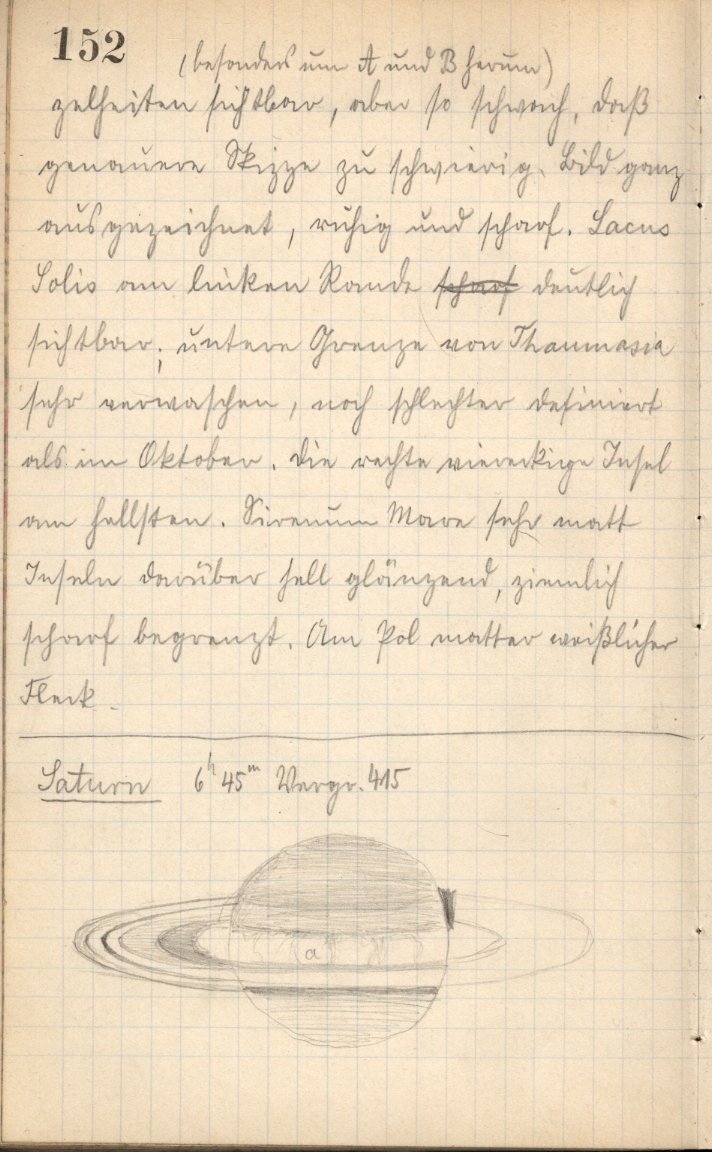 152
(besonders um A und B herum)
zelheiten sichtbar, aber so schwach, daß
genauere Skizze zu schwierig. Bild ganz
ausgezeichnet, ruhig und scharf. Lacus
Solis am linken Rande scharf deutlich
sichtbar; untere Grenze von Thaumasia
sehr verwaschen, noch schlechter definiert
als im Oktober. Die rechte viereckige Insel
am hellsten. Sirenum Mare sehr matt
Inseln darüber hell glänzend, ziemlich
scharf begrenzt. Am Pol matter weißlicher
Fleck.
Saturn 6h 45m Vergr. 415
a